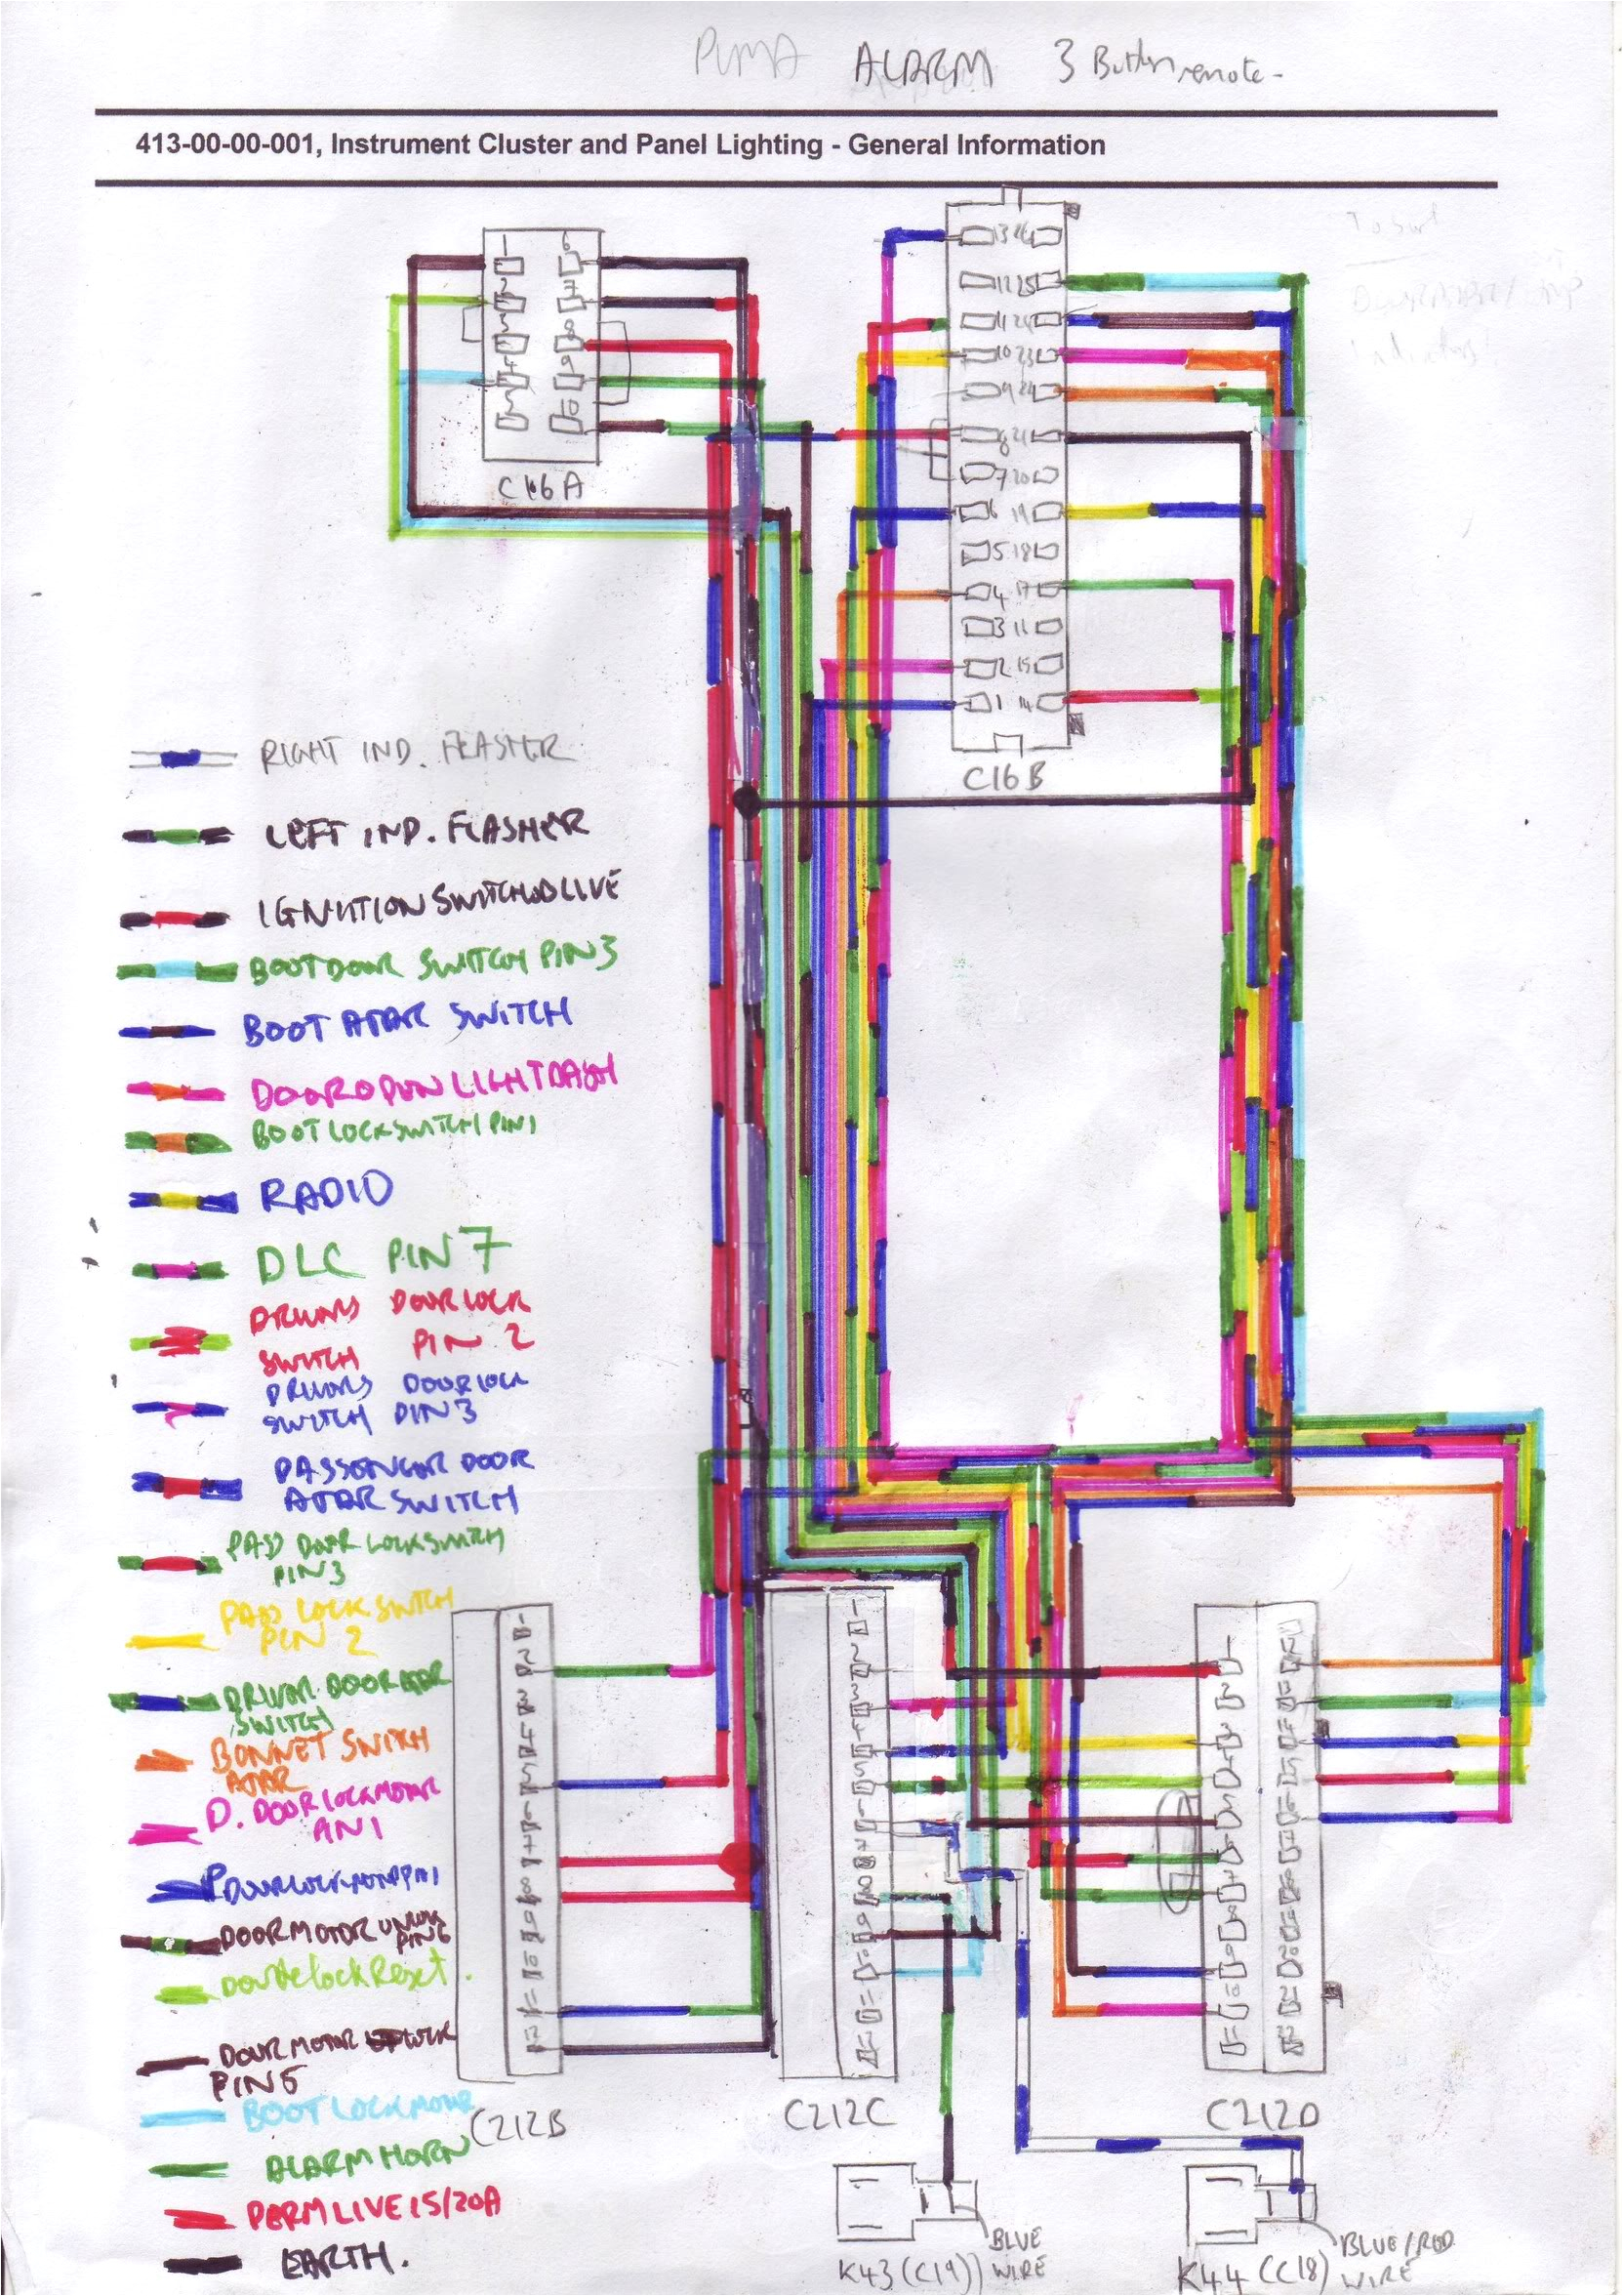 PUMA ALARM 3 Button remote-
413-00-00-001, Instrument Cluster and Panel Lighting - General Information
To Sort
1 6
2 7
3 8
4 9
5 10
C16A
13 26
12 25
11 24
10 23
9 22
8 21
7 20
6 19
5 18
4 17
3 16
2 15
1 14
C16B
RIGHT IND. FLASHER
LEFT IND. FLASHER
IGNITION SWITCHED LIVE
BOOT DOOR SWITCH PIN 3
BOOT AJAR SWITCH
DOOR OPEN LIGHT DASH
BOOT LOCK SWITCH PIN 1
RADIO
DLC PIN 7
DRIVERS DOOR LOCK
SWITCH PIN 2
DRIVERS DOOR LOCK
SWITCH PIN 3
PASSENGER DOOR
AJAR SWITCH
PASS DOOR LOCK SWITCH
PIN 3
PASS LOCK SWITCH
PIN 2
DRIVER DOOR AJAR
SWITCH
BONNET SWITCH
AJAR
D. DOOR LOCK MOTOR
PIN 1
P DOOR LOCK MOTOR PIN 1
DOOR MOTOR UNLOCK
PIN 6
Double lock Reset.
DOOR MOTOR LOCK
PIN 5
BOOT LOCK MOTOR
ALARM HORN
PERM LIVE 15/20A
EARTH.
C212B
C212C
C212D
BLUE
WIRE
K43 (C19)
BLUE/RED
WIRE
K44 (C18)